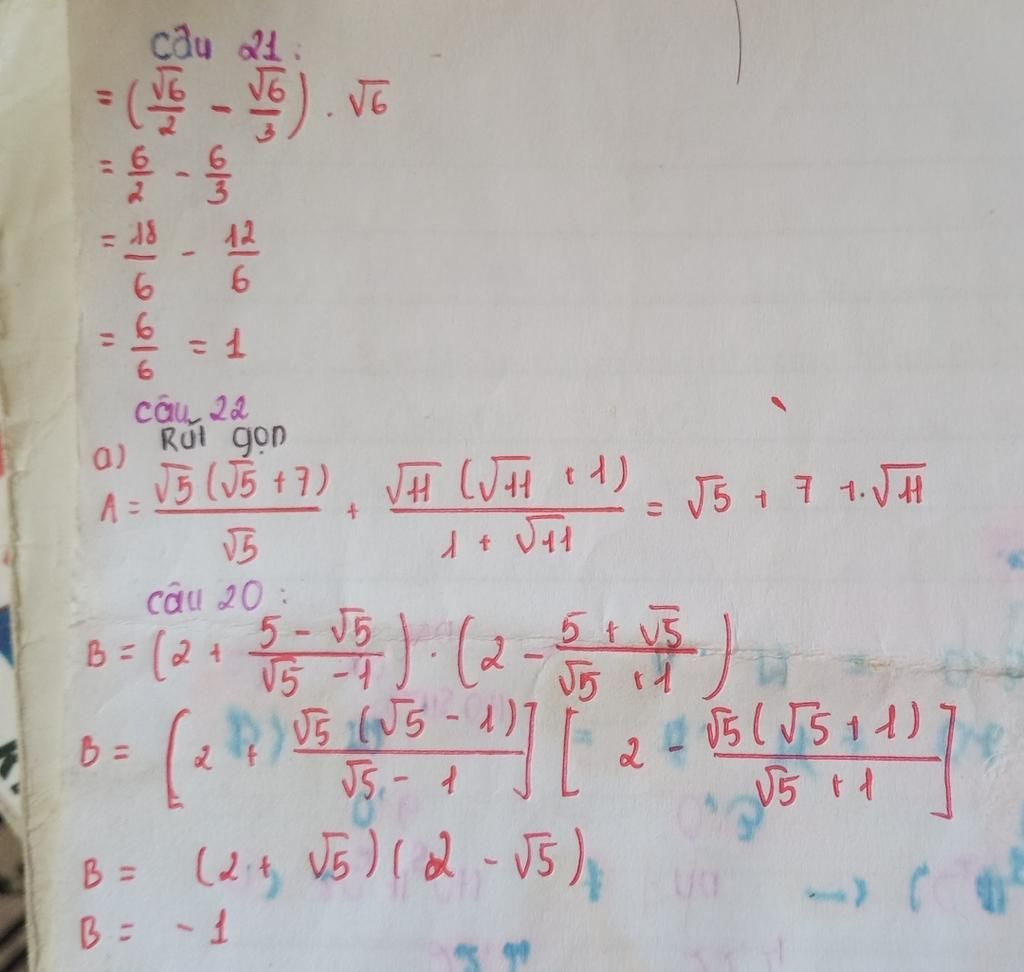 câu 21:
= (√6/2 - √6/3) . √6
= 6/2 - 6/3
= 18/6 - 12/6
= 6/6 = 1
câu 22
Rút gọn
a) A = √5(√5 + 7)/√5 + √11(√11 + 1)/(1 + √11) = √5 + 7 + √11
câu 20:
B = (2 + (5 - √5)/(√5 - 1)) . (2 - (5 + √5)/(√5 + 1))
B = [2 + √5(√5 - 1)/(√5 - 1)] [2 - √5(√5 + 1)/(√5 + 1)]
B = (2 + √5)(2 - √5)
B = -1